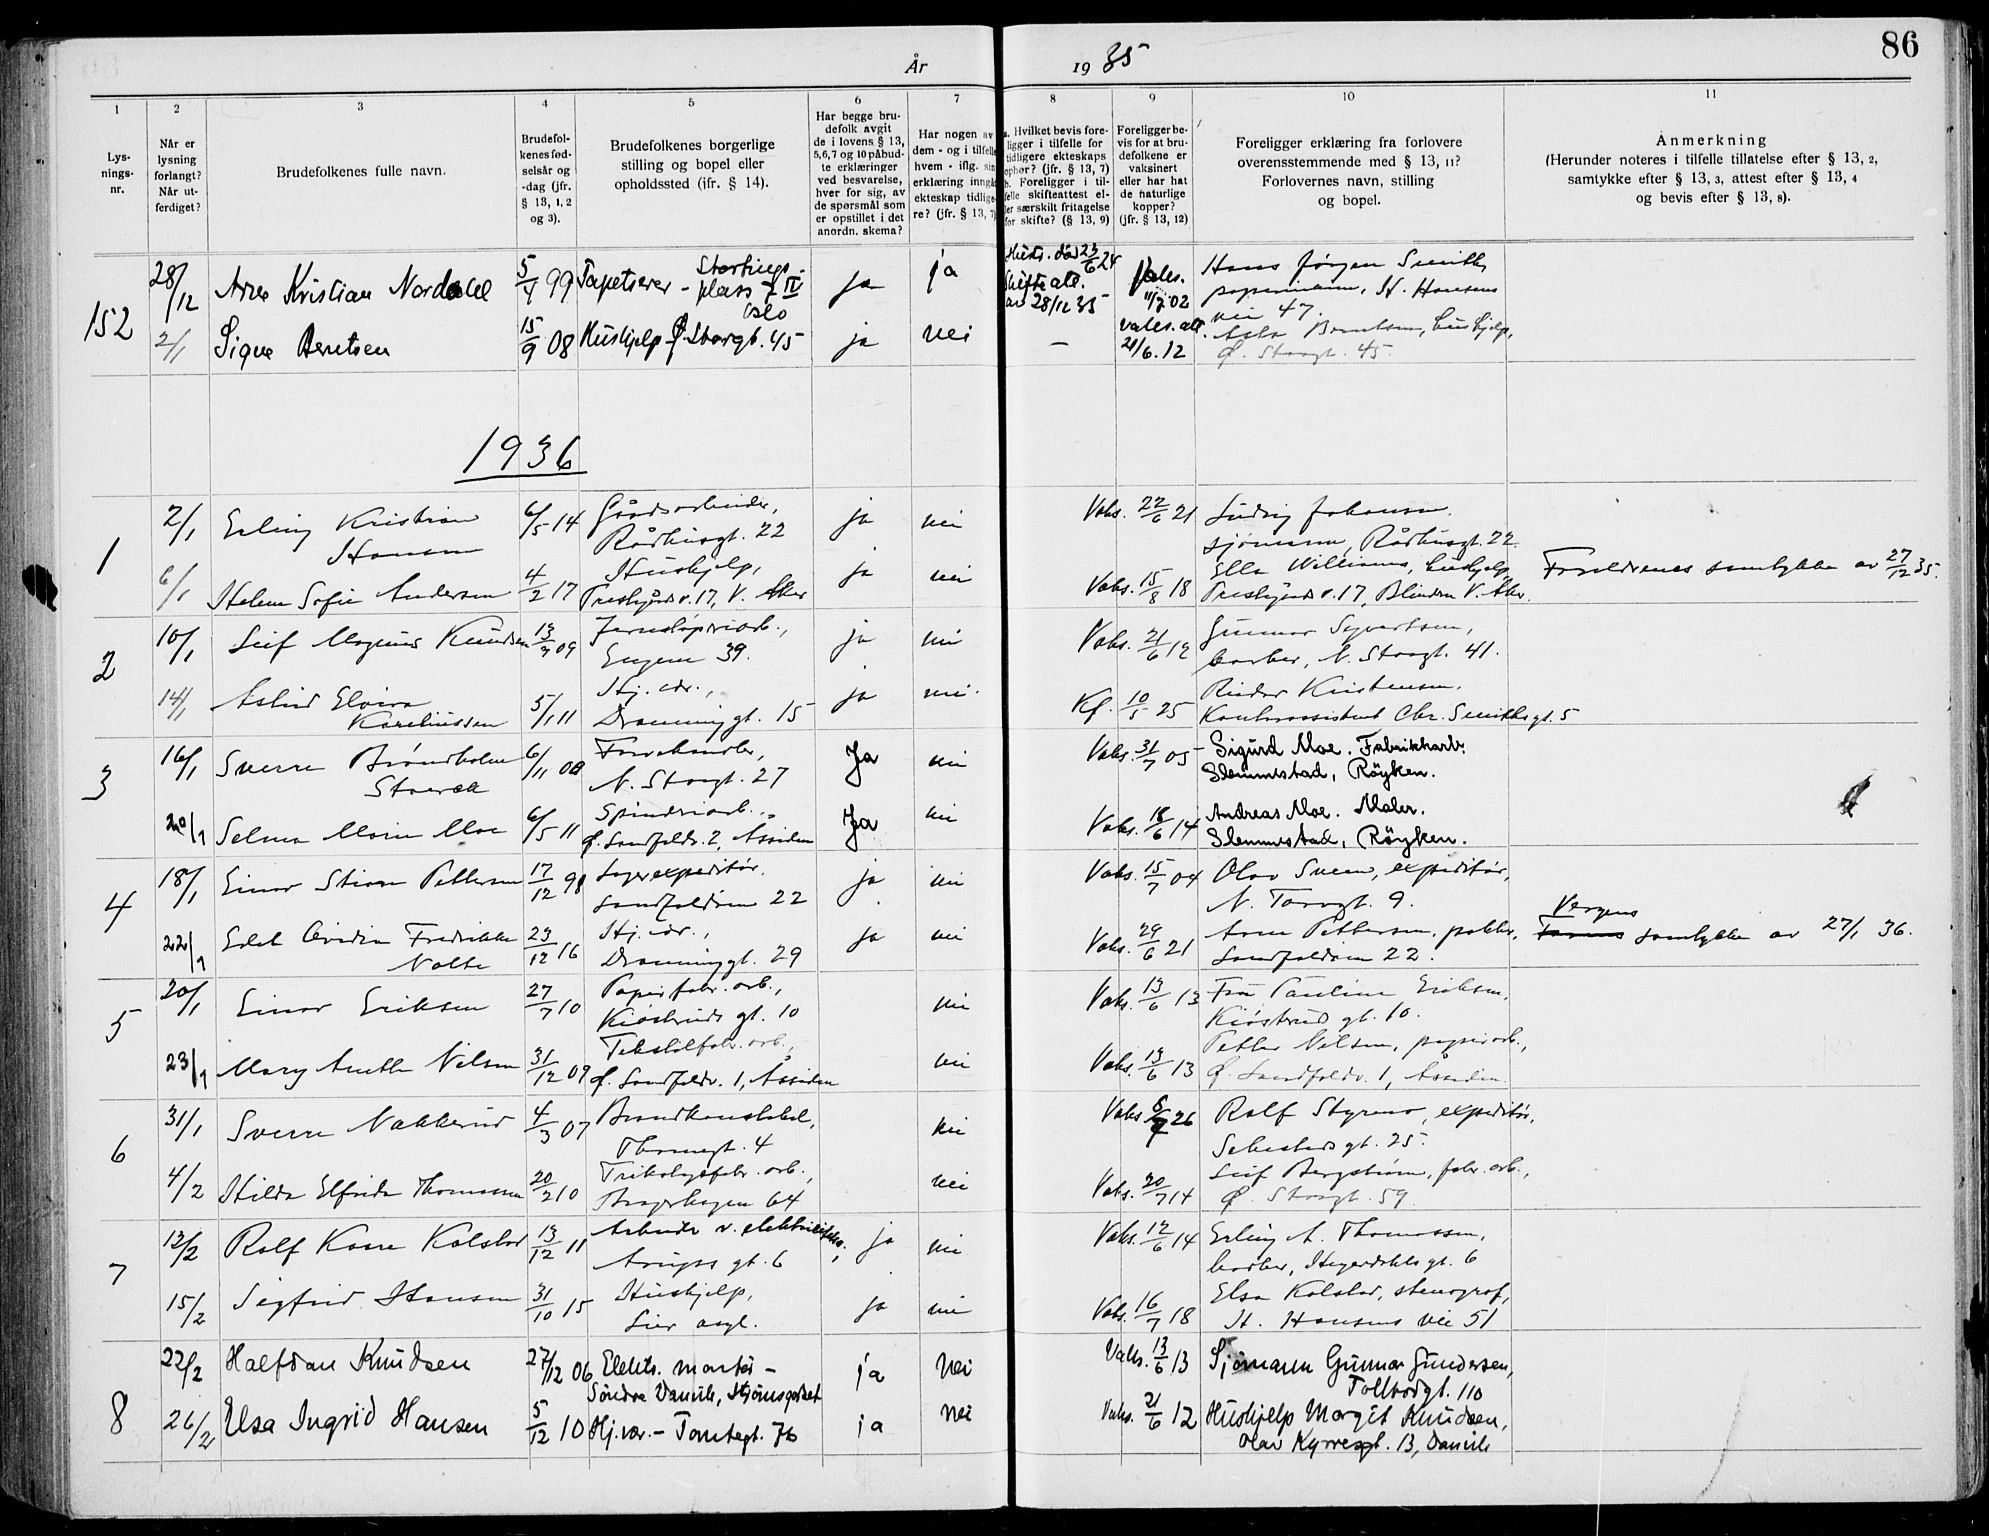 År 1935
86
1 2 3 4 5 6 7 8 9 10 11
Lysningsnr.
Når er lysning forlangt? Når utferdiget?
Brudefolkenes fulle navn.
Brudefolkenes fødselsår og -dag (jfr. § 13, 1, 2 og 3).
Brudefolkenes borgerlige stilling og bopel eller opholdssted (jfr. § 14).
Har begge brudefolk avgit de i lovens § 13, 5,6,7 og 10 påbudte erklæringer ved besvarelse, hver for sig, av de spørsmål som er opstillet i det anordn. skema?
Har nogen av dem - og i tilfelle hvem - iflg. sin erklæring inngått ekteskap tidligere? (jfr. § 13, 7)
a. Hvilket bevis foreligger i tilfelle for tidligere ekteskaps ophør? (jfr. § 13, 7) b. Foreligger i tilfelle skifteattest eller særskilt fritagelse for skifte? (§ 13, 9)
Foreligger bevis for at brudefolkene er vaksinert eller har hat de naturlige kopper? (jfr. § 13, 12)
Foreligger erklæring fra forlovere overensstemmende med § 13, 11? Forlovernes navn, stilling og bopel.
Anmerkning (Herunder noteres i tilfelle tillatelse efter § 13, 2, samtykke efter § 13, 3, attest efter § 13, 4 og bevis efter § 13, 8).
152 28/12 Kristian 5/4 99 Tapetserer - Stortings-
plass 7 IV Oslo ja ja
Hustr. død 23/6 24 Skifteatt. av 28/12 35 Vaks. 11/7 02
Hans Jørgen Smith, St. Hansens vei 47.
2/1 Signe Berntsen 15/9 08 Hushjelp Ø. Storgt. 45 ja nei - vaks. att. 21/6. 12
Berntsen, hushjelp,
Ø. Storgt. 45.
1936
1 2/1 Erling Kristian 6/5 14 Gårdsarbeider, ja nei Vaks. 22/6 21 Ludvig Johansen.
Hansen Rådhusgt. 22 sjømann, Rådhusgt. 22.
6/1 Helene Sofie Andersen 4/2 17 Hushjelp, ja nei Vaks. 15/8 18 Ella Williams, hushjelp,
v. 17, V. Aker v. 17, Blindern V. Aker. Foreldrenes samtykke av 27/12 35.
2 10/1 Leif Magnus Knudsen 13/7 09 Jernstøperiarb., ja nei Vaks. 21/6 12 Gunnar Syvertsen,
Engene 39. barber, N. Storgt. 41.
14/1 Astrid Elvira 5/1 11 Hj. vær., ja nei. Kf. 10/5 25 Reidar Kristensen.
Kareliussen Dronninggt. 15 Kontorassistent Chr. Smithsgt. 5
3 16/1 Sverre Brøndholm 6/11 08 Ja nei Vaks. 31/7 05 Sigurd Moe. Fabrikkarb.
N. Storgt. 27 Slemmestad, Røyken.
20/1 Selma Marie Moe 6/5 11 Spinneriarb., Ja nei Vaks. 18/6 14 Andreas Moe. Maler.
Ø. Landfaldv. 2, Assiden Slemmestad, Røyken.
4 18/1 Einar Pettersen 17/12 98 Lagerexpeditør. ja nei Vaks. 15/7 04 Olav Sveen, expeditør,
Landfaldøen 22 N. Torvgt. 9.
22/1 Fredrikke 23/12 16 Hj. vær., ja nei Vaks. 29/6 21 Arne Pettersen, pakker, Vergens samtykke av 27/1 36.
Nolte Dronninggt. 29 Landfaldøen 22.
5 20/1 Einar Eriksen 27/7 10 Papirfabr. arb., nei Vaks. 13/6 13 Fru Pauline Eriksen,
Kiøsterudsgt. 10 Kiøsterudsgt. 10.
23/1 Mary Anette Nilsen 31/12 09 Tekstilfabr. arb., nei Vaks. 13/6 13 Petter Nilsen, papirarb.,
Ø. Landfaldv. 1, Assiden Ø. Landfaldv. 1, Assiden.
6 31/1 Sverre Nakkerud 4/3 07 Brandkonstabel, nei Vaks 26 Rolf Styrmo, expeditør,
Thornegt. 4 gt. 25.
4/2 Hilda Elfrida Thomassen 20/2 10 Trikotagefabr. arb., nei Vaks. 20/7 14 Leif Bergstrøm, fabr. arb.,
Bragerhagen 64 Ø. Storgt. 59
7 13/2 Rolf Kåre Kolstad 13/12 11 Arbeider v. ja nei Vaks. 12/6 14 Erling A. Thomassen,
Arups gt. 6 barber, gt. 6
15/2 Sigfrid Hansen 31/10 15 Hushjelp, ja nei Vaks. 16/7 18 Elsa Kolstad, stenograf,
Lier St. Hansens vei 51
8 22/2 Halfdan Knudsen 27/12 06 Elektr. montør - ja nei Vaks. 13/6 13 Sjømann Gunnar Gundersen,
Søndre Tollbodgt. 110
26/2 Elsa Ingrid Hansen 5/12 10 Hj. vær. - Tomtegt. 76 ja nei Vaks. 21/6 12 Hushjelp Margit Knudsen,
Olav Kyrresgt. 13,